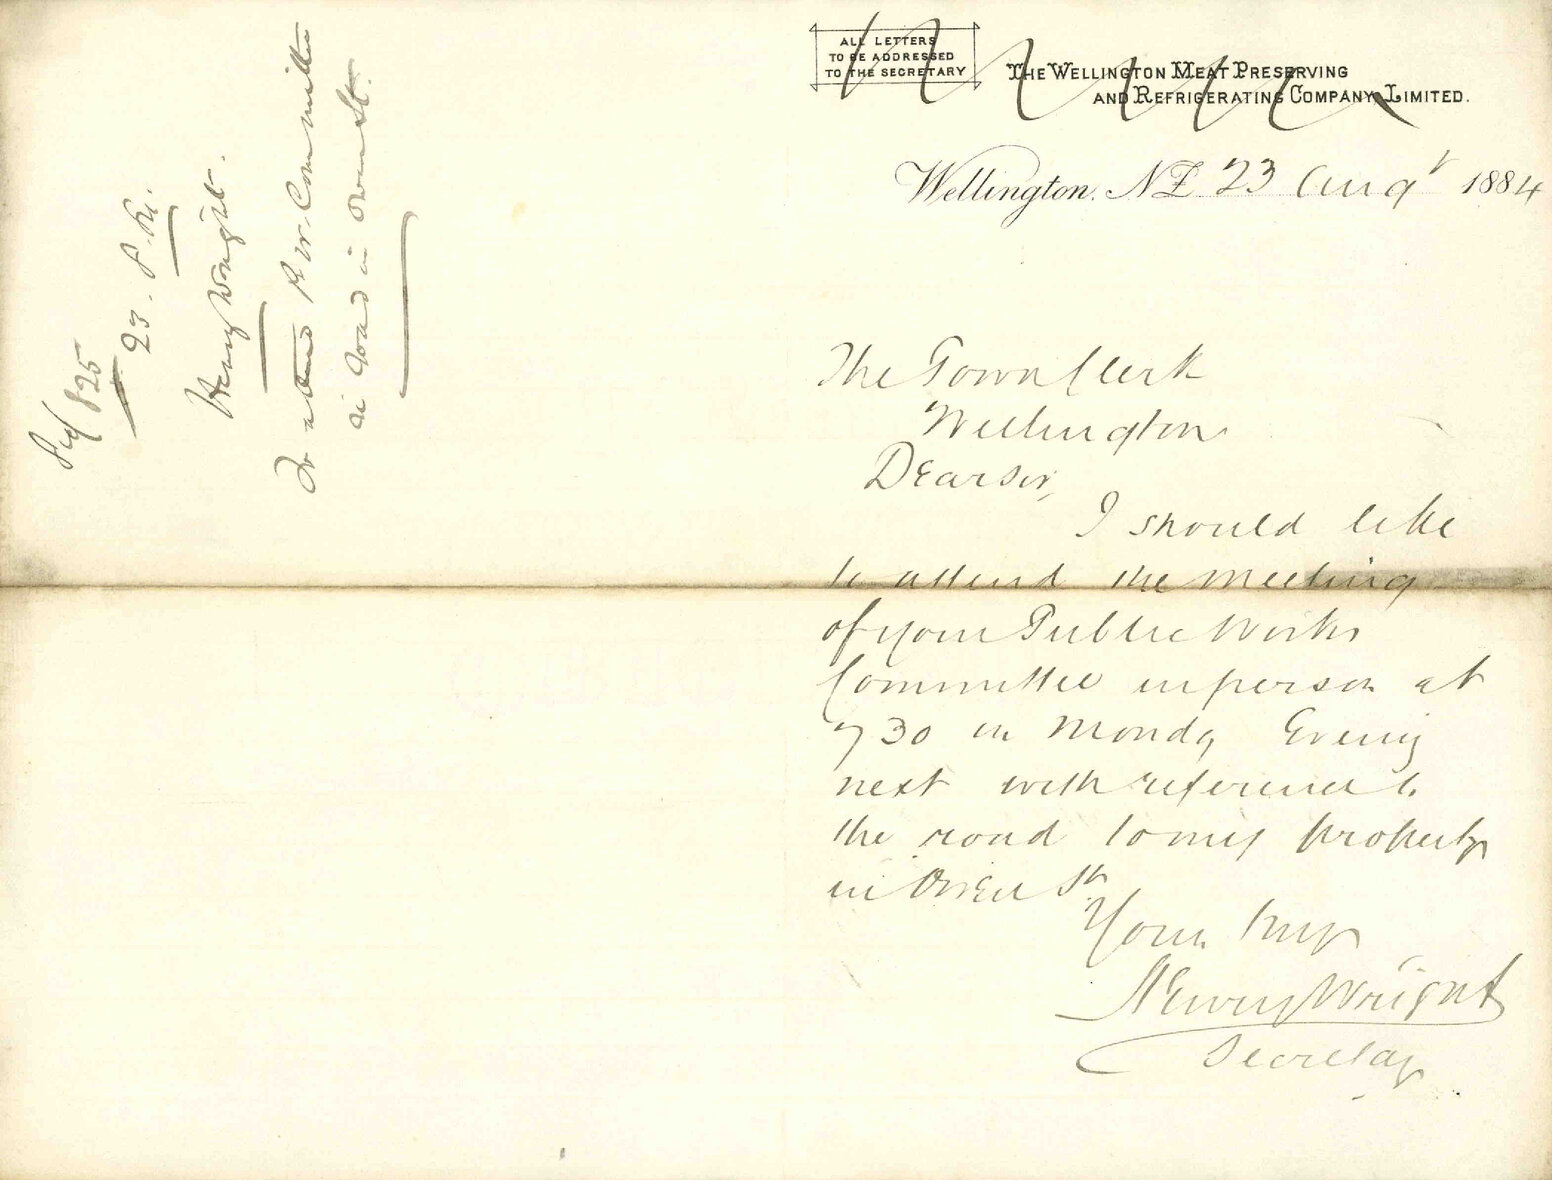 ALL LETTERS
TO BE ADDRESSED
TO THE SECRETARY
THE WELLINGTON MEAT PRESERVING
AND REFRIGERATING COMPANY, LIMITED.
Wellington. N Z 23 Augt 1884
The Town Clerk
Wellington
Dear sir,
I should like
to attend the meeting
of your Public Works
Committee in person at
7 30 on Monday Evening
next with reference to
the road to my property
in Owen St
Yours truly
Henry Wright
Secretary
825
23. 8.
Henry Wright.
To attend P. W. Committee
road in Owen St.